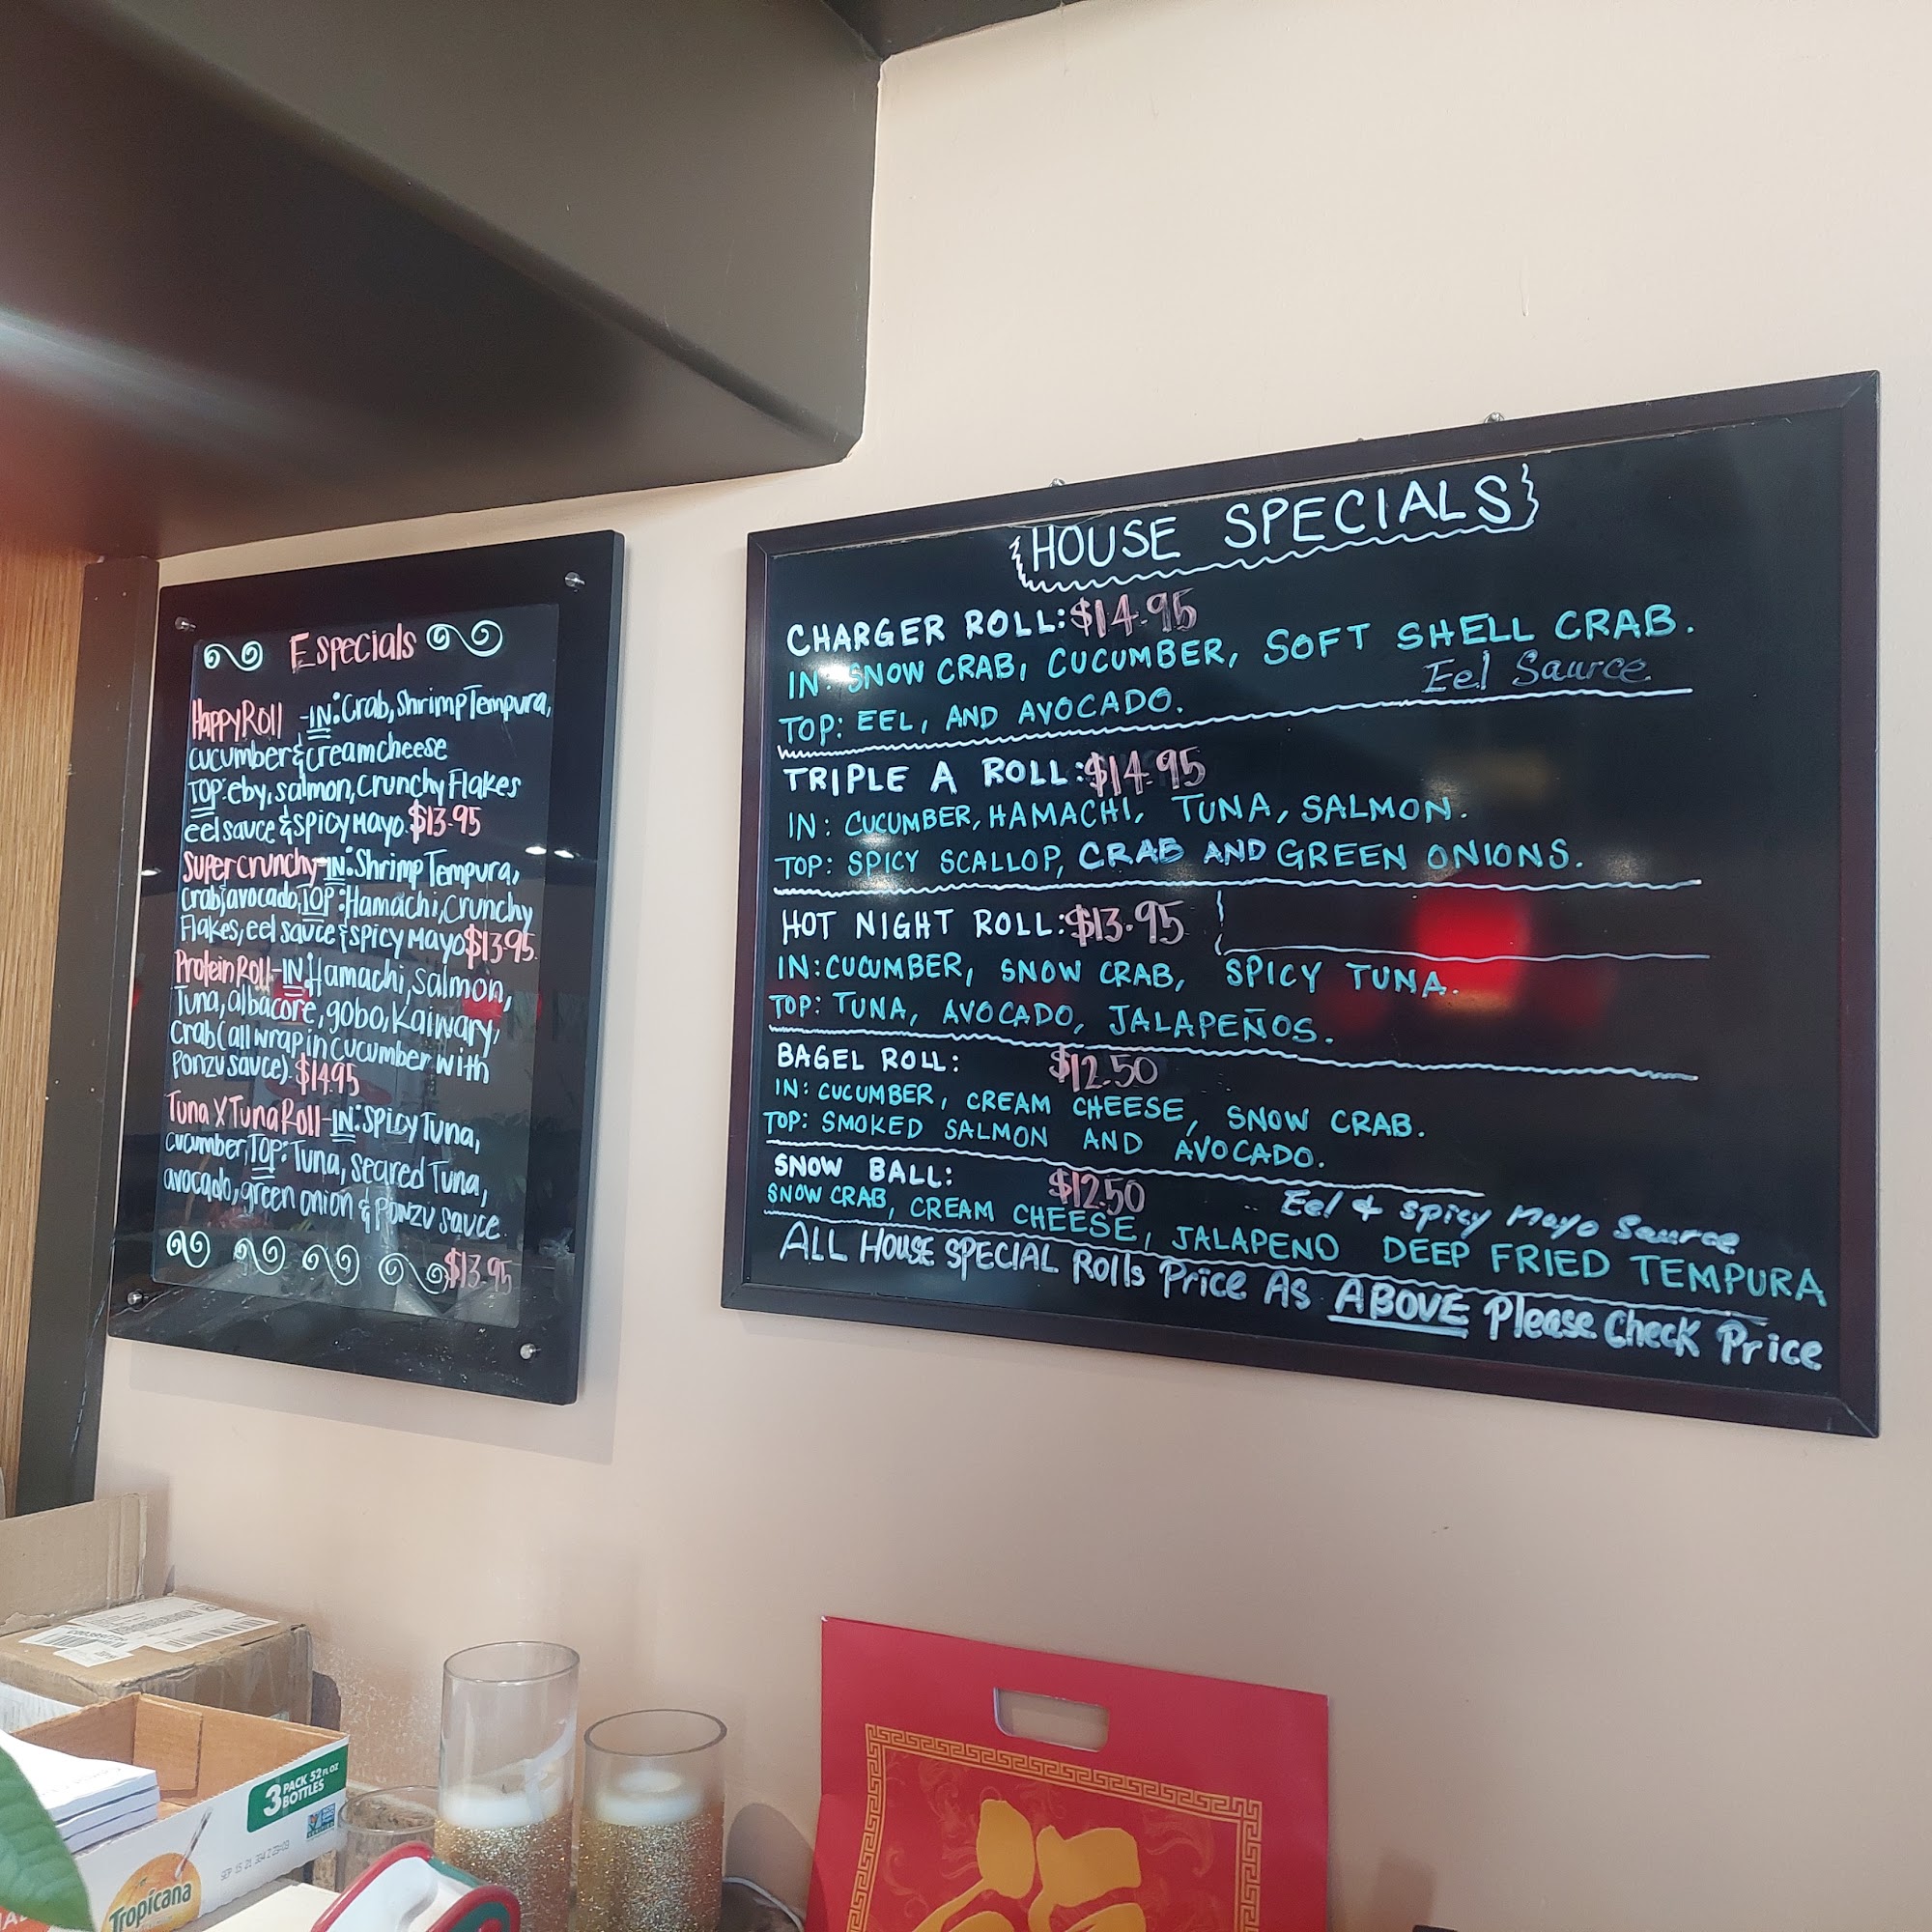 Especials
Happy Roll -IN: Crab, Shrimp Tempura,
cucumber & creamcheese
TOP: eby, salmon, Crunchy Flakes
eel sauce & spicy Mayo. $13.95
Super crunchy-IN: Shrimp Tempura,
Crab, avocado, TOP: Hamachi, Crunchy
Flakes, eel sauce & spicy Mayo $13.95
Protein Roll-IN: Hamachi, Salmon,
Tuna, albacore, gobo, Kaiwary,
Crab (all wrap in cucumber with
Ponzu sauce). $14.95
Tuna X Tuna Roll-IN: Spicy Tuna,
cucumber, TOP: Tuna, seared Tuna,
avocado, green onion & Ponzu sauce.
$13.95
HOUSE SPECIALS
CHARGER ROLL: $14.95
IN: SNOW CRAB, CUCUMBER, SOFT SHELL CRAB.
Eel Saurce
TOP: EEL, AND AVOCADO.
TRIPLE A ROLL: $14.95
IN: CUCUMBER, HAMACHI, TUNA, SALMON.
TOP: SPICY SCALLOP, CRAB AND GREEN ONIONS.
HOT NIGHT ROLL: $13.95
IN: CUCUMBER, SNOW CRAB, SPICY TUNA.
TOP: TUNA, AVOCADO, JALAPEÑOS.
BAGEL ROLL: $12.50
IN: CUCUMBER, CREAM CHEESE, SNOW CRAB.
TOP: SMOKED SALMON AND AVOCADO.
SNOW BALL: $12.50
Eel & Spicy Mayo Saurce
SNOW CRAB, CREAM CHEESE, JALAPENO DEEP FRIED TEMPURA
ALL HOUSE SPECIAL Rolls Price As ABOVE Please Check Price
3 PACK 52 FL OZ
BOTTLES
Tropicana